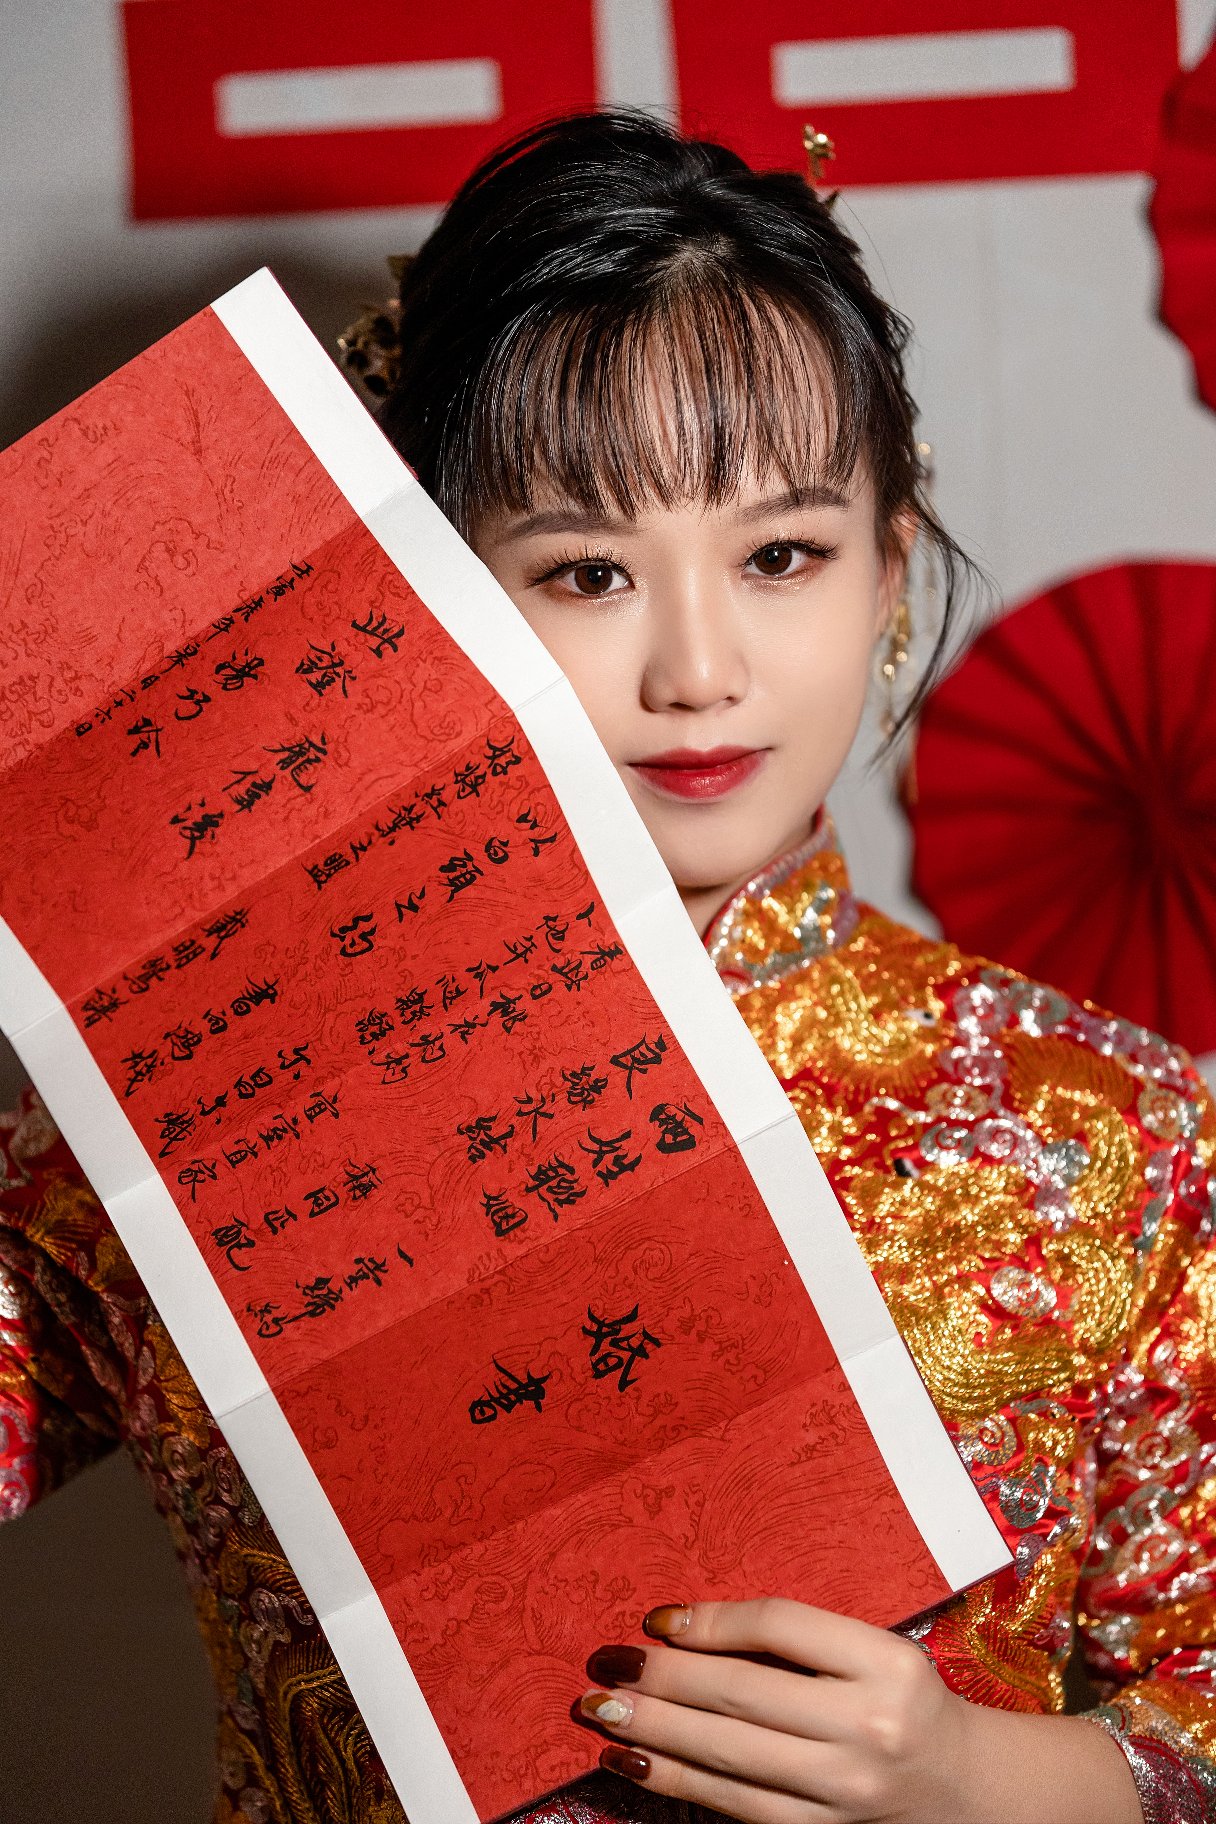 婚書
兩姓聯姻 一堂締約
良緣永結 稱同配
看此日桃花灼灼 宜室宜家
卜他年瓜瓞綿綿 爾昌爾熾
以白頭之約 書向鴻箋
好將紅葉之盟 載明鴛譜
此證
龐偉浚
湯乃玲
壬寅虎年 二十六日